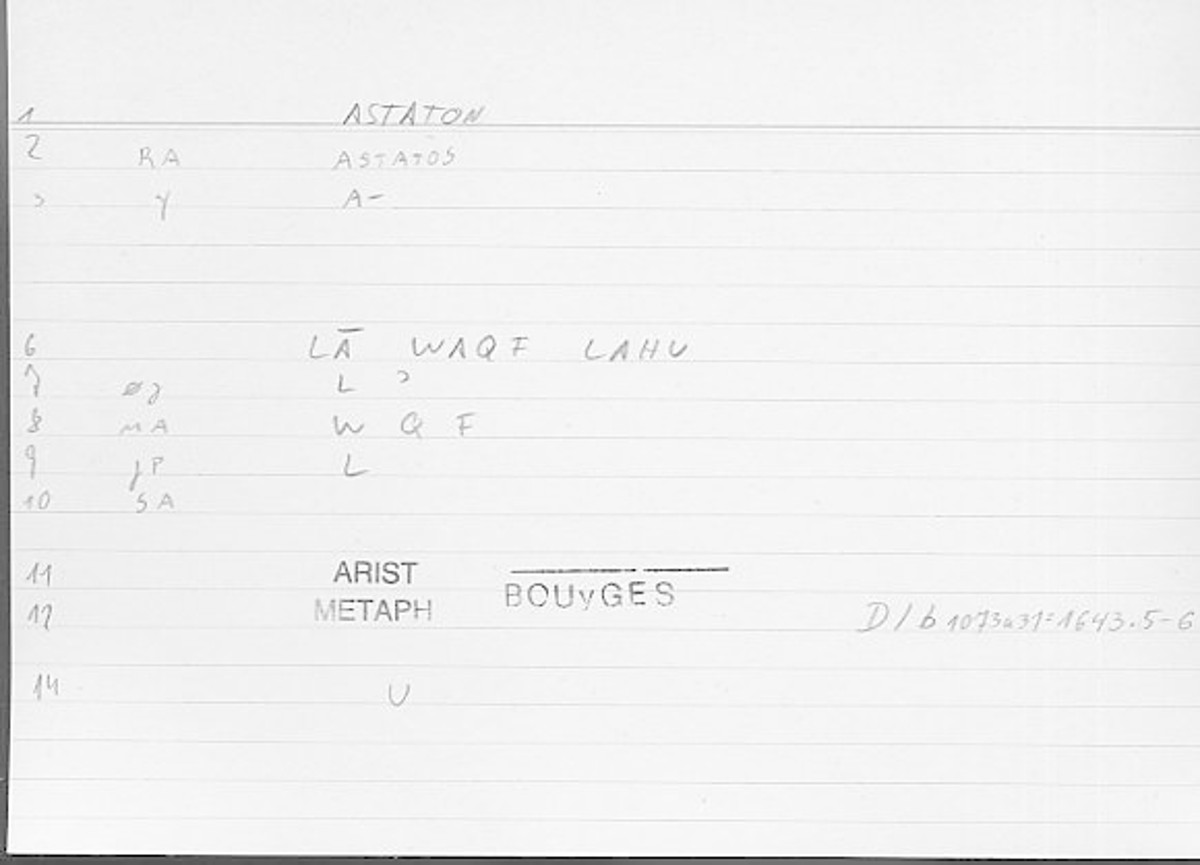 1 ASTATON
2 RA ASTATOS
3 γ A-
6 LĀ WAQF LAHU
7 L ʾ
8 MA W Q F
9 JP L
10 SA
11 ARIST
BOUyGES
12 METAPH D/b 1073a31=1643.5-6
14 U